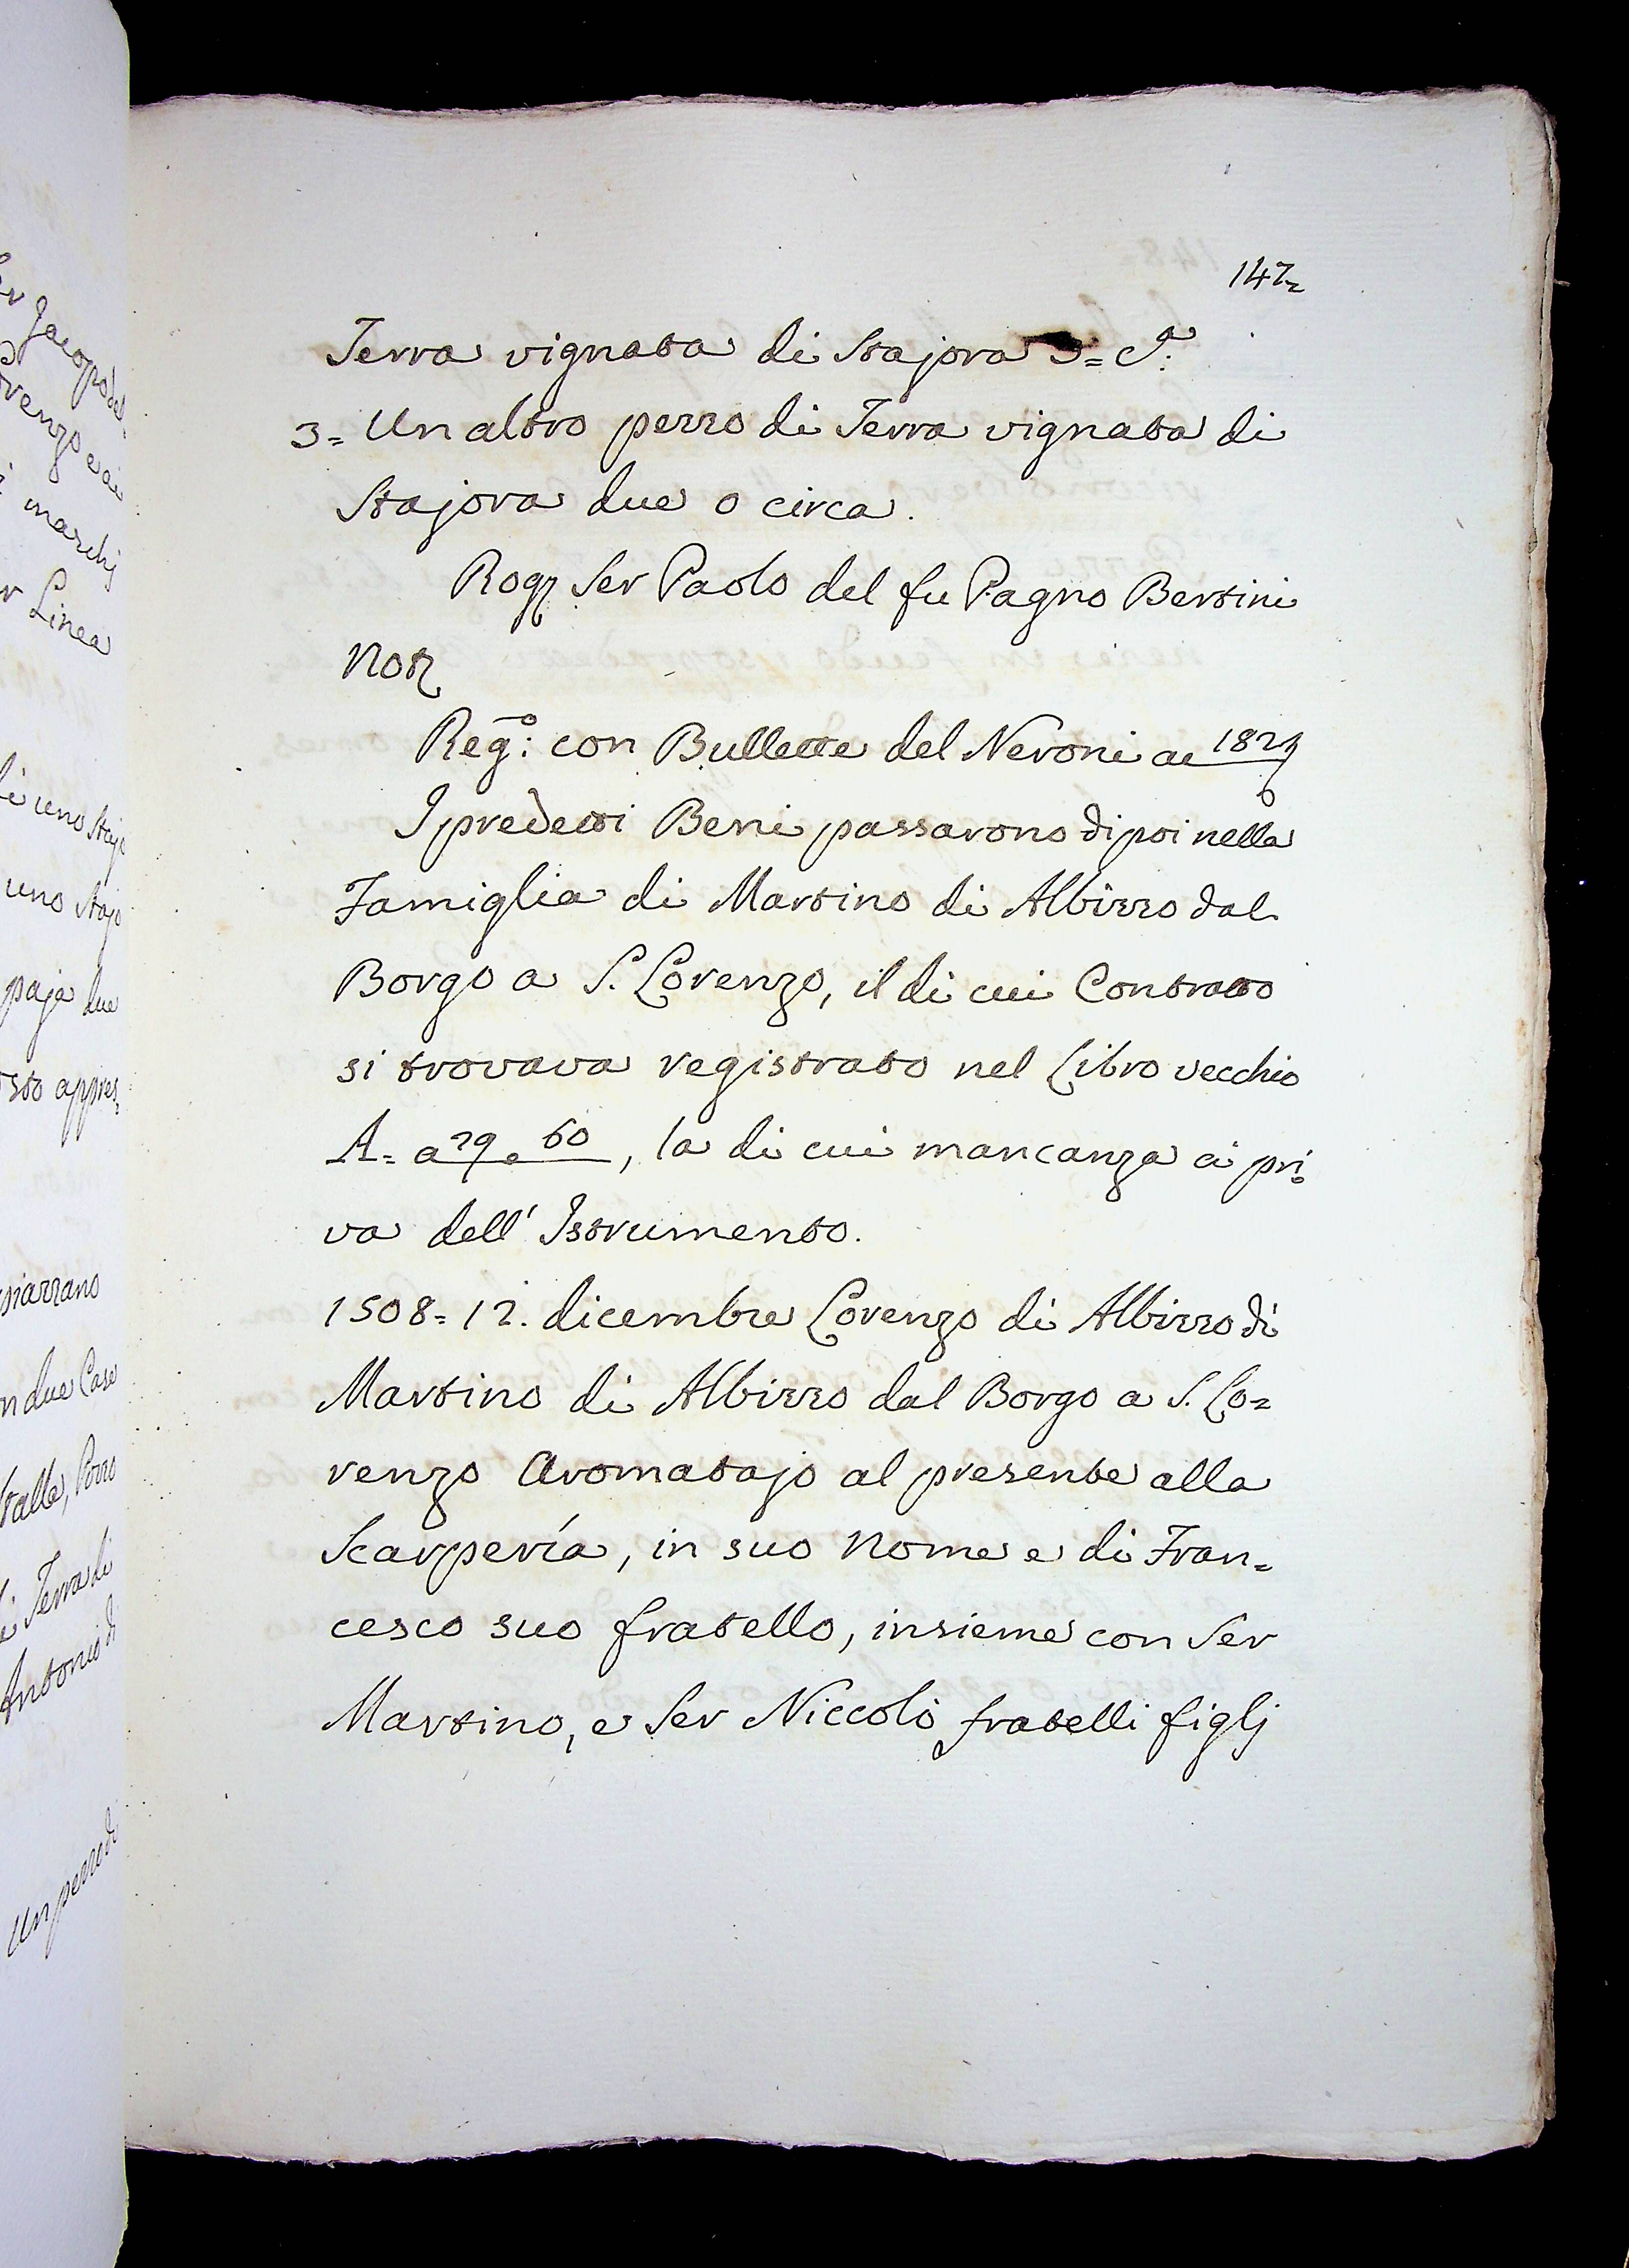 Jacopo del
Lorenzo e ai
marchj
Linea
di uno Staj
uno Stajo
paja due
sto appres=
n due Case
Stalle, Pozzo
di Terra di
Antonio di
Un pezzo di
147=
Terra vignata di Stajora 3=
3= Un altro pezzo di Terra vignata di
Stajora due o circa.
Rog. Ser Paolo del fu Pagno Bertini
Not.
Reg.º: con Bullette del Neroni a 182
I predetti Beni passarono di poi nella
Famiglia di Martino di Albizzo dal
Borgo a S. Lorenzo, il di cui Contratto
si trovava registrato nel Libro vecchio
A= a 29 e 60, la di cui mancanza ci pri=
va dell' Istrumento.
1508= 12. dicembre Lorenzo di Albizzo di
Martino di Albizzo dal Borgo a S. Lo=
renzo Aromatajo al presente alla
Scarpería, in suo Nome e di Fran=
cesco suo fratello, insieme con Ser
Martino, e Ser Niccolò fratelli figlj